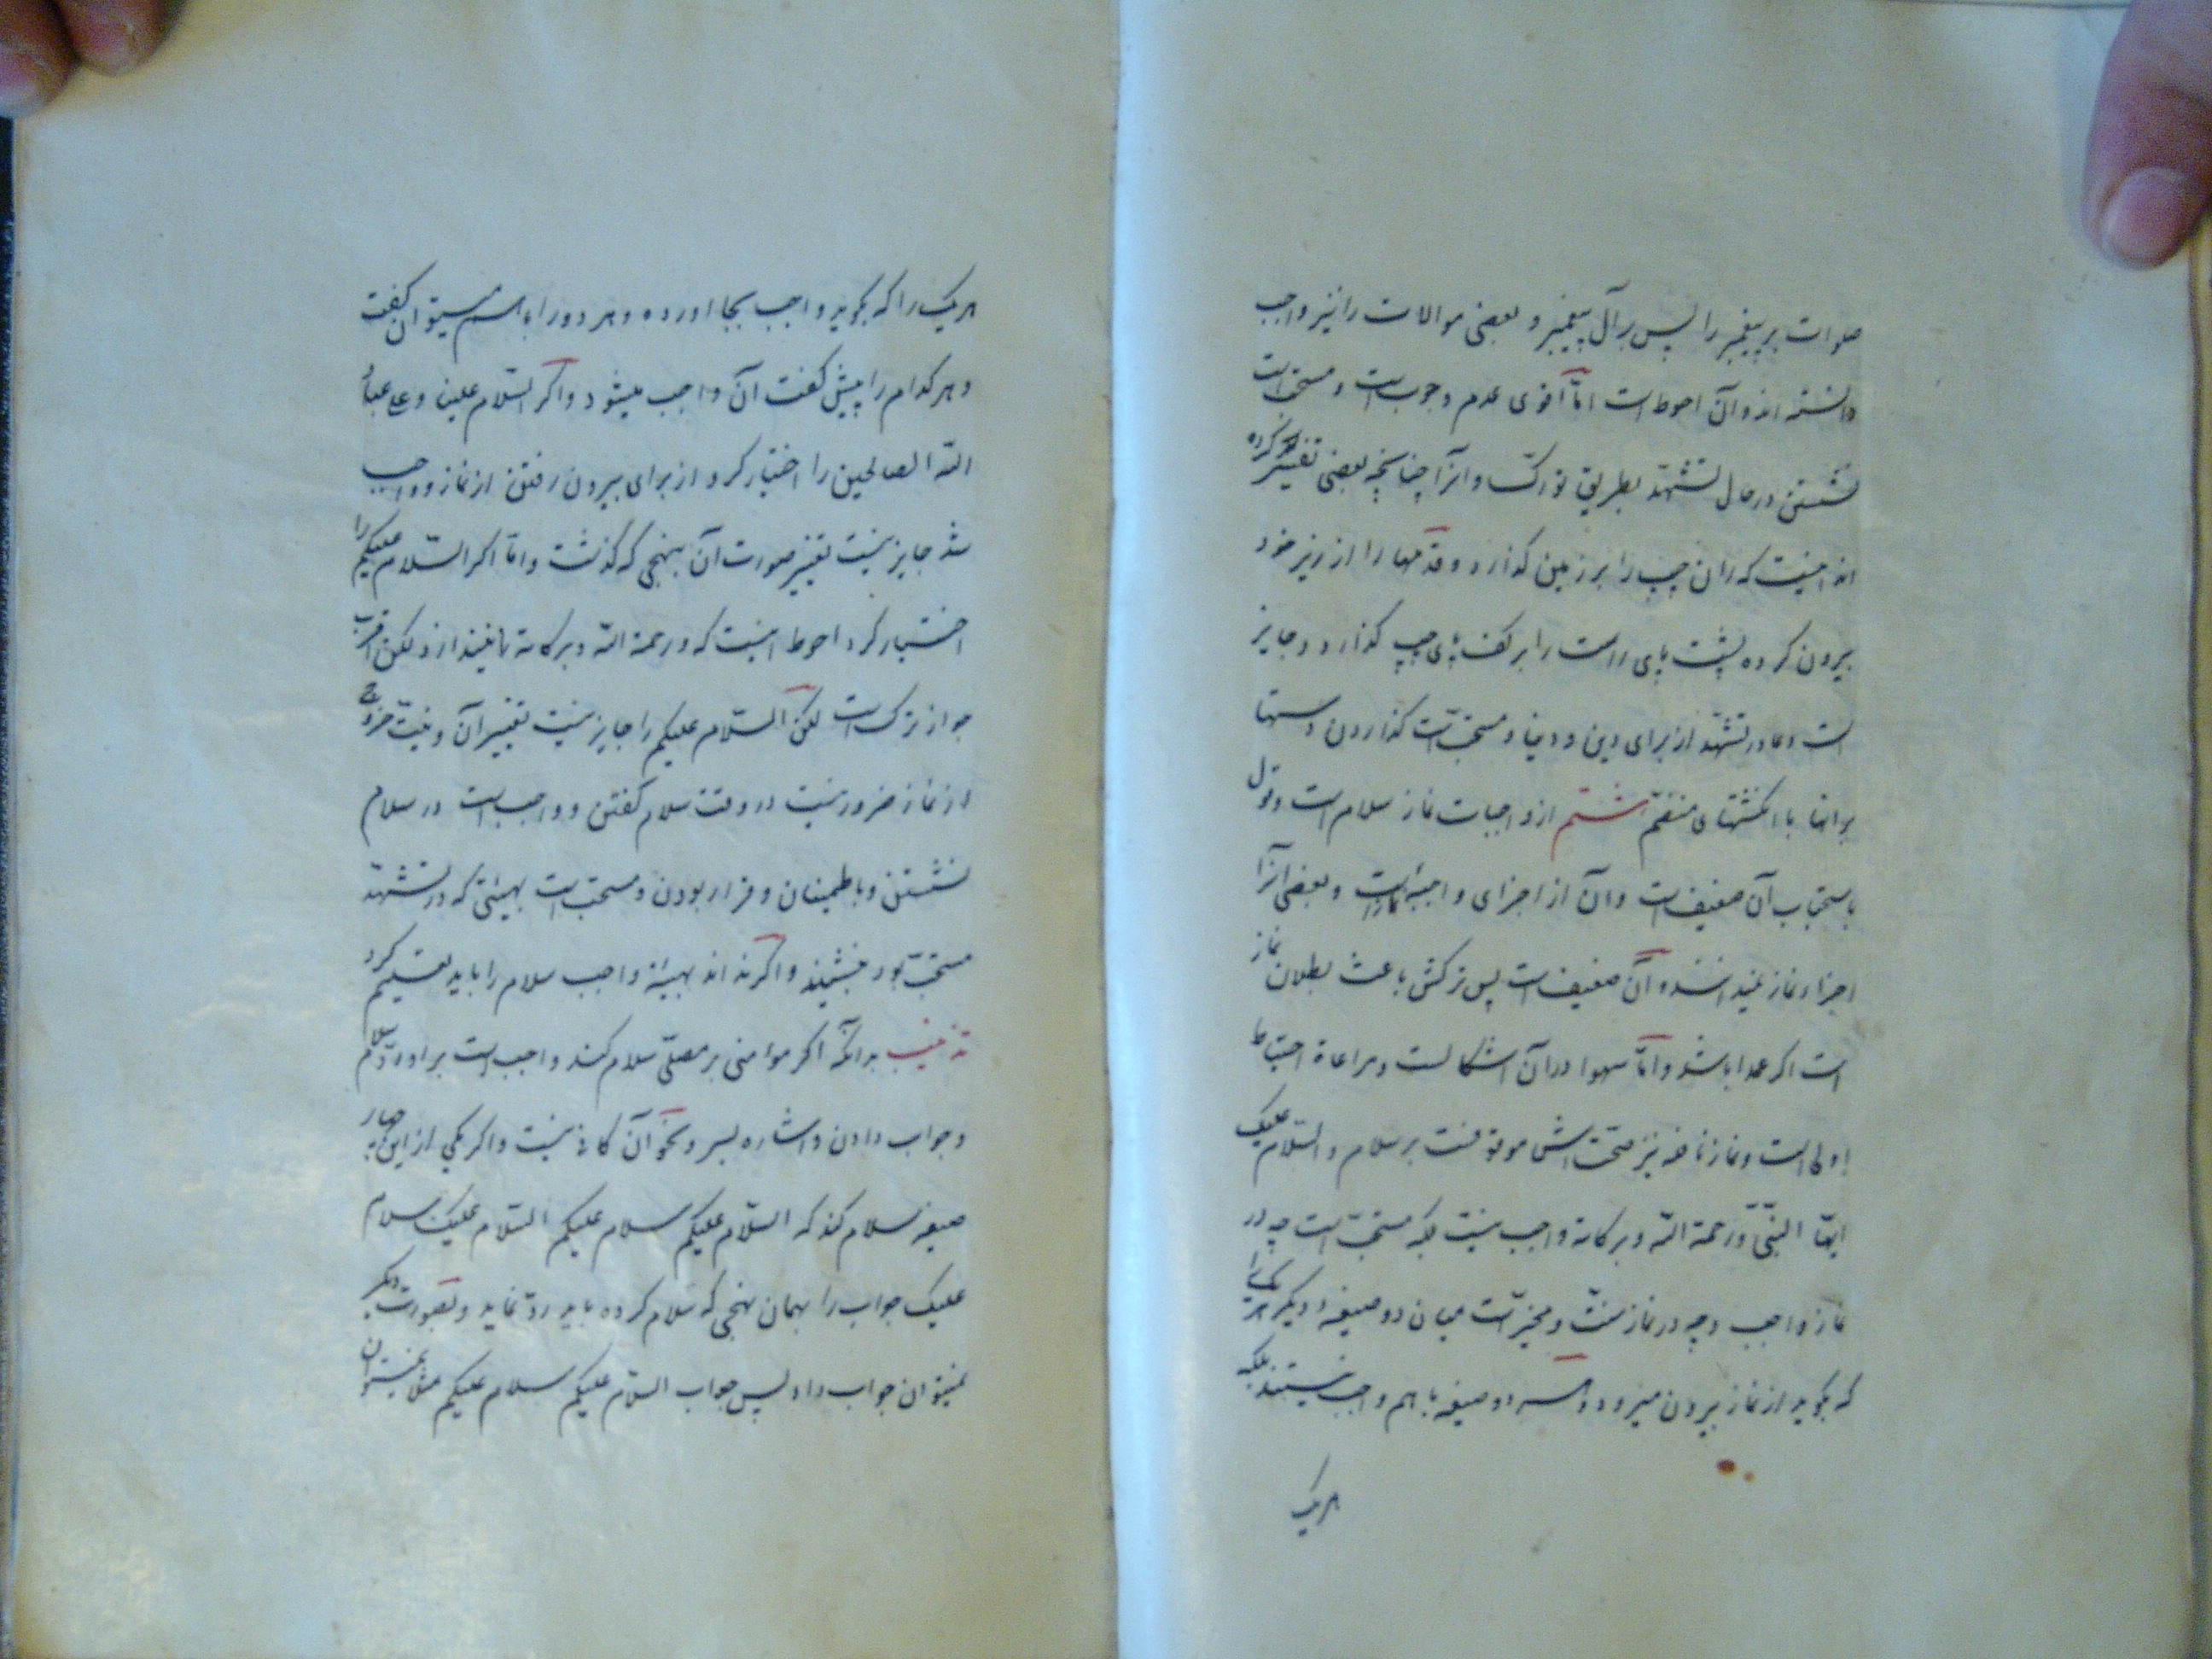 صلوات بر پیغمبر را پس بر آل پیغمبر و بعضی موالات را نیز واجب
دانسته اند و آن احوط است اما اقوی عدم وجوب است و مستحب است
نشستن در حال تشهد بطریق تورک و آنرا چنانچه بعضی تفسیر کرده
اند اینست که ران چپ را بر زمین گذارد و قدمها را از زیر خود
بیرون کرده پشت پای راست را بر کف پای چپ گذارد و جایز
است دعا در تشهد از برای دین و دنیا و مستحب است گذاردن دستها
بر رانها با انگشتهای منضم هشتم از واجبات نماز سلام است و قول
باستحباب آن ضعیف است و آن از اجزای واجبه نماز است و بعضی آنرا
اجزاء نماز نمیدانند و آن ضعیف است پس ترکش باعث بطلان نماز
است اگر عمدا باشد و اما سهوا در آن اشکالست و مراعاة احتیاط
اولی است و نماز نافله نیز صحت اش موقوفست بر سلام و السلام علیک
ایها النبی و رحمة الله و برکاته واجب نیست بلکه مستحب است چه در
نماز واجب و چه در نماز سنت و مخیر است میان دو صیغه دیگر هر یک را
که بگوید از نماز بیرون میرود و دو صیغه باهم واجب نیستند بلکه
هر یک
هر یک را که بگوید واجب بجا اورده و هر دو را با هم میتوان گفت
و هر کدام را پیش گفت آن واجب میشود و اگر السلام علینا و علی عباد
الله الصالحین را اختیار کرد از برای بیرون رفتن از نماز و واجب
شد جایز نیست تغییر صورت آن بنهجی که گذشت و اما اگر السلام علیکم را
اختیار کرد احوط اینست که و رحمة الله و برکاته را نیندازد لکن اقرب
جواز ترک است لکن السلام علیکم را جایز نیست تغییر آن و نیت خروج
از نماز ضرور نیست در وقت سلام گفتن و واجب است در سلام
نشستن و باطمینان و قرار بودن و مستحب است بهیئتی که در تشهد
مستحب بود بنشیند و اگر نداند بهیئة واجب سلام را باید تعلیم کرد
تذنیب بدانکه اگر مؤمنی بر مصلی سلام کند واجب است بر او رد سلام
و جواب دادن و اشاره بسر و نحو آن کافی نیست و اگر یکی از این چهار
صیغه سلام کند که السلام علیکم سلام علیکم السلام علیک سلام
علیک جواب را بهمان نهجی که سلام کرده باید رد نماید و بصورت دیگر
نمیتوان جواب داد پس جواب السلام علیکم سلام علیکم مثلا نمیتوان